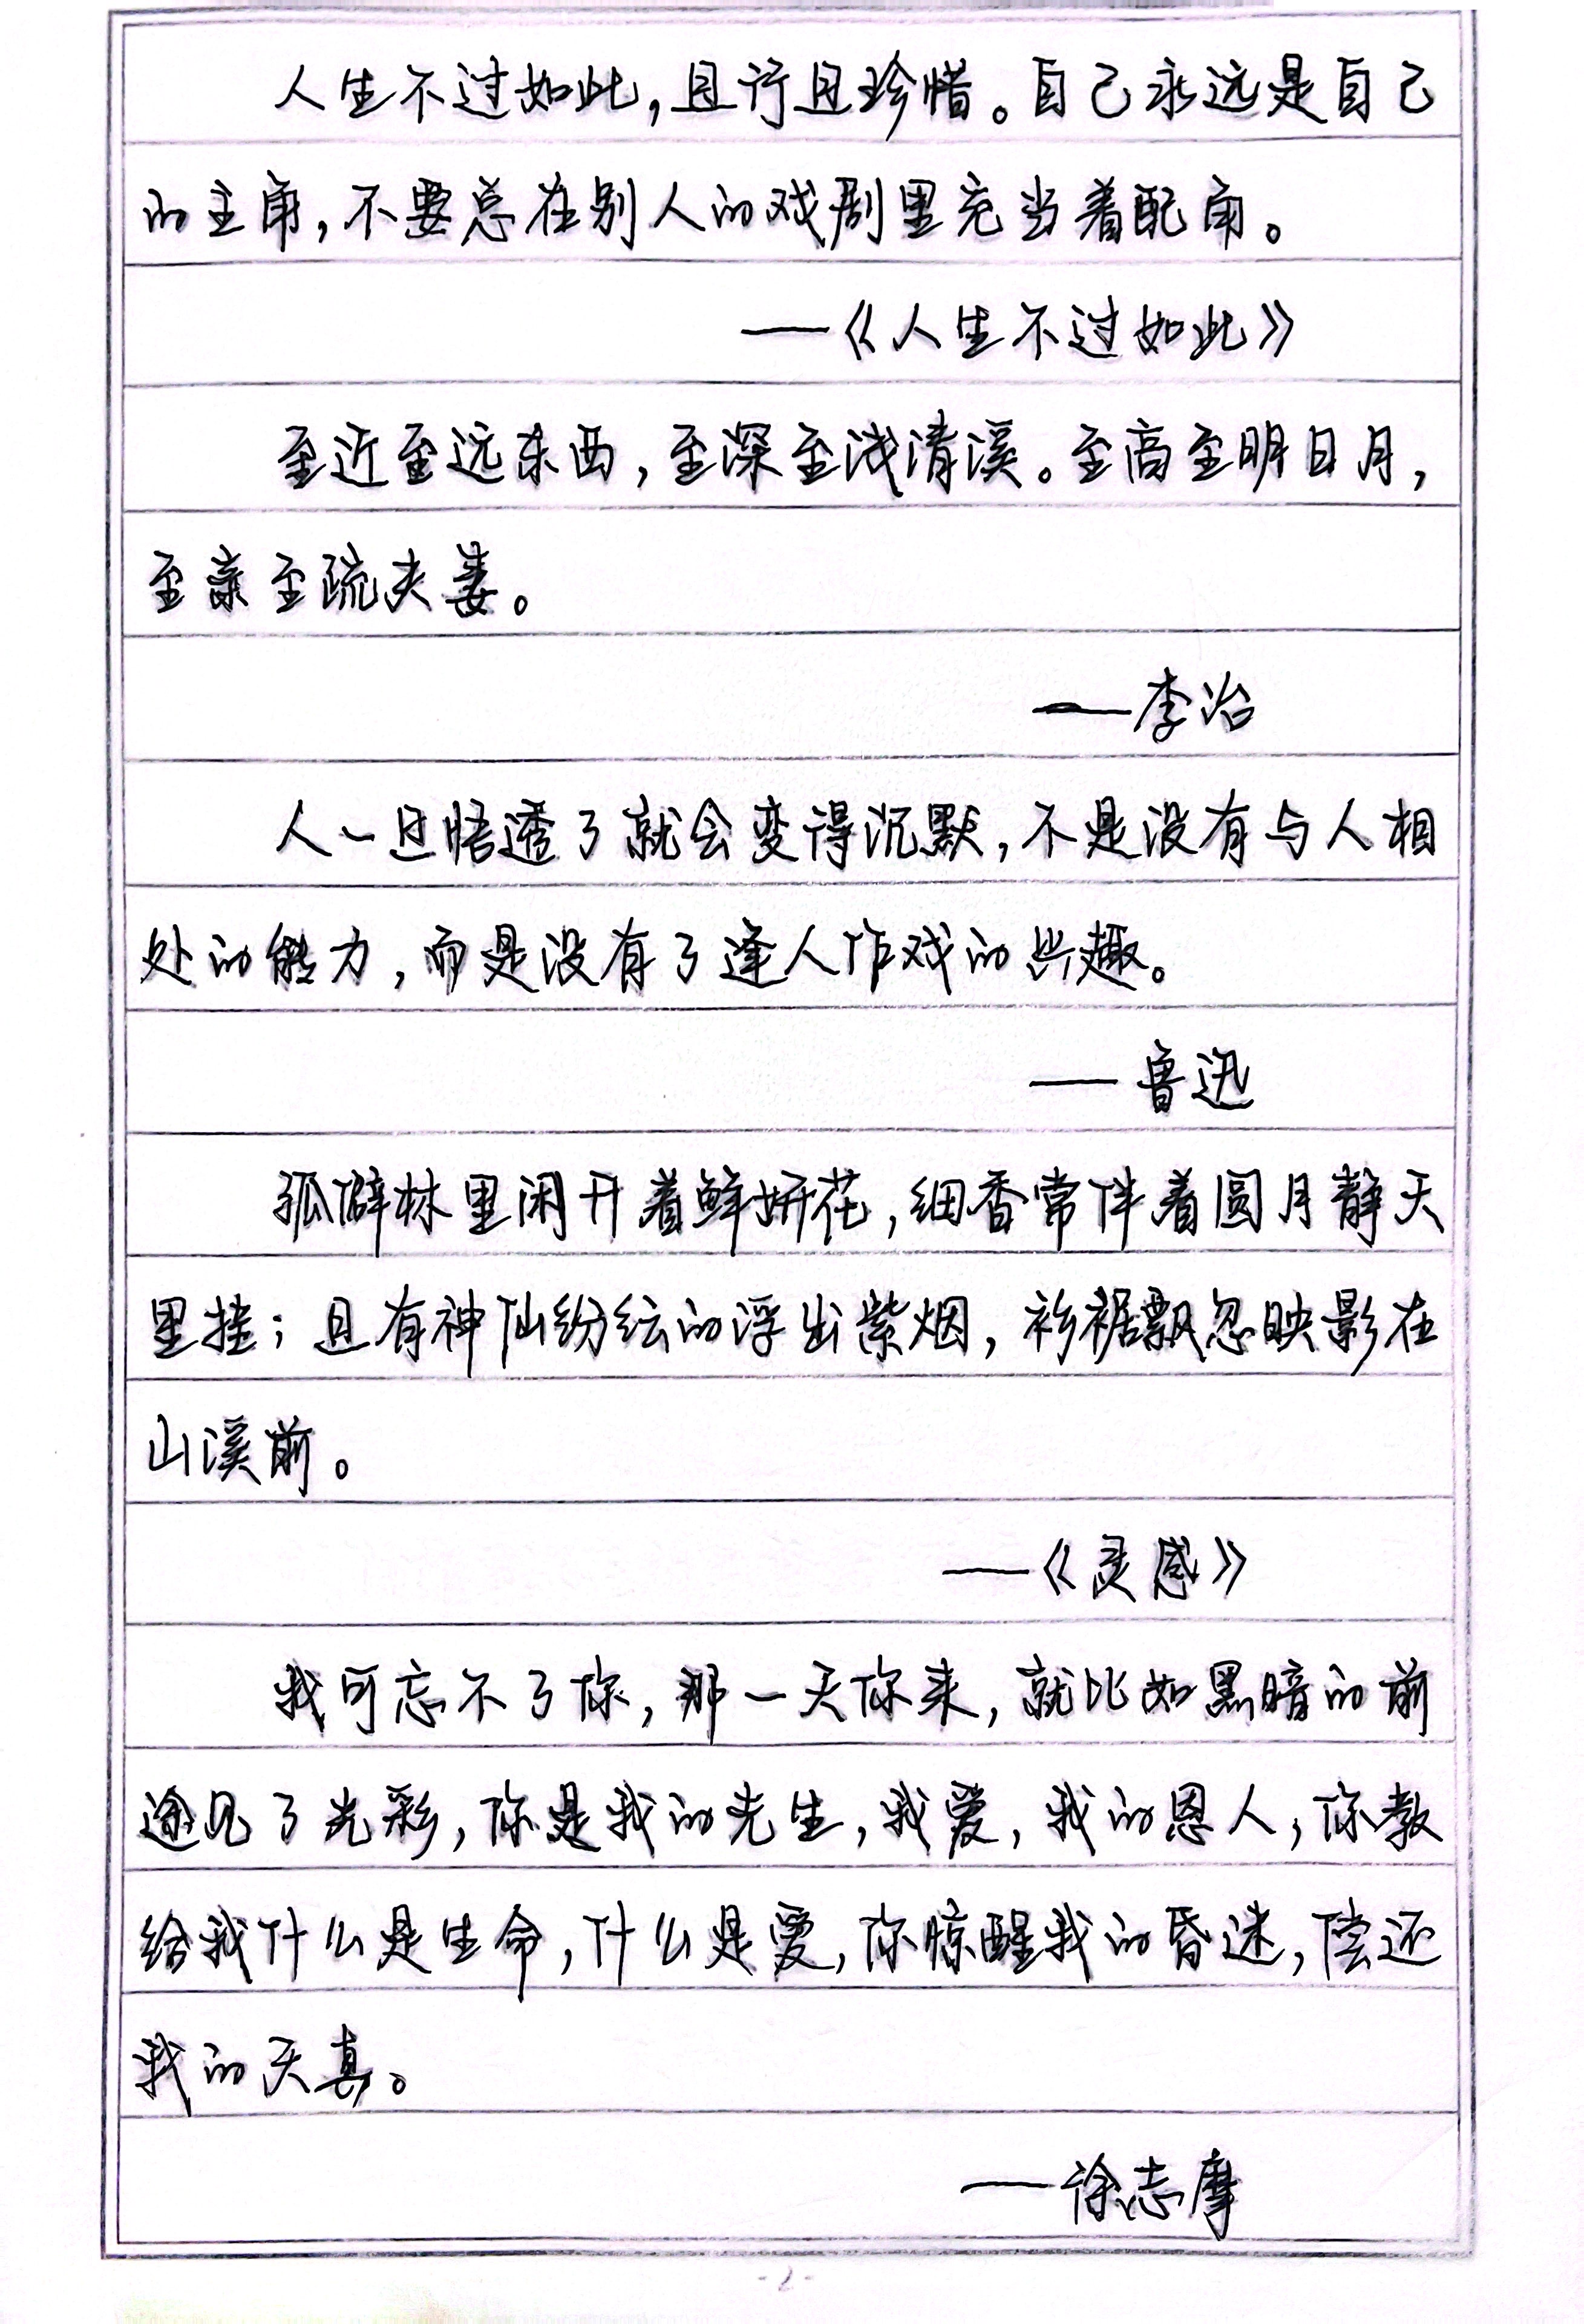 人生不过如此，且行且珍惜。自己永远是自己
的主角，不要总在别人的戏剧里充当着配角。
——《人生不过如此》
至近至远东西，至深至浅清溪。至高至明日月，
至亲至疏夫妻。
——李冶
人一旦悟透了就会变得沉默，不是没有与人相
处的能力，而是没有了逢人作戏的兴趣。
——鲁迅
孤僻林里闲开着鲜妍花，细香常伴着圆月静天
里挂；且有神仙纷纭的浮出紫烟，衫裾飘忽映影在
山溪前。
——《灵感》
我可忘不了你，那一天你来，就比如黑暗的前
途见了光彩，你是我的先生，我爱，我的恩人，你教
给我什么是生命，什么是爱，你惊醒我的昏迷，偿还
我的天真。
——徐志摩
-2-